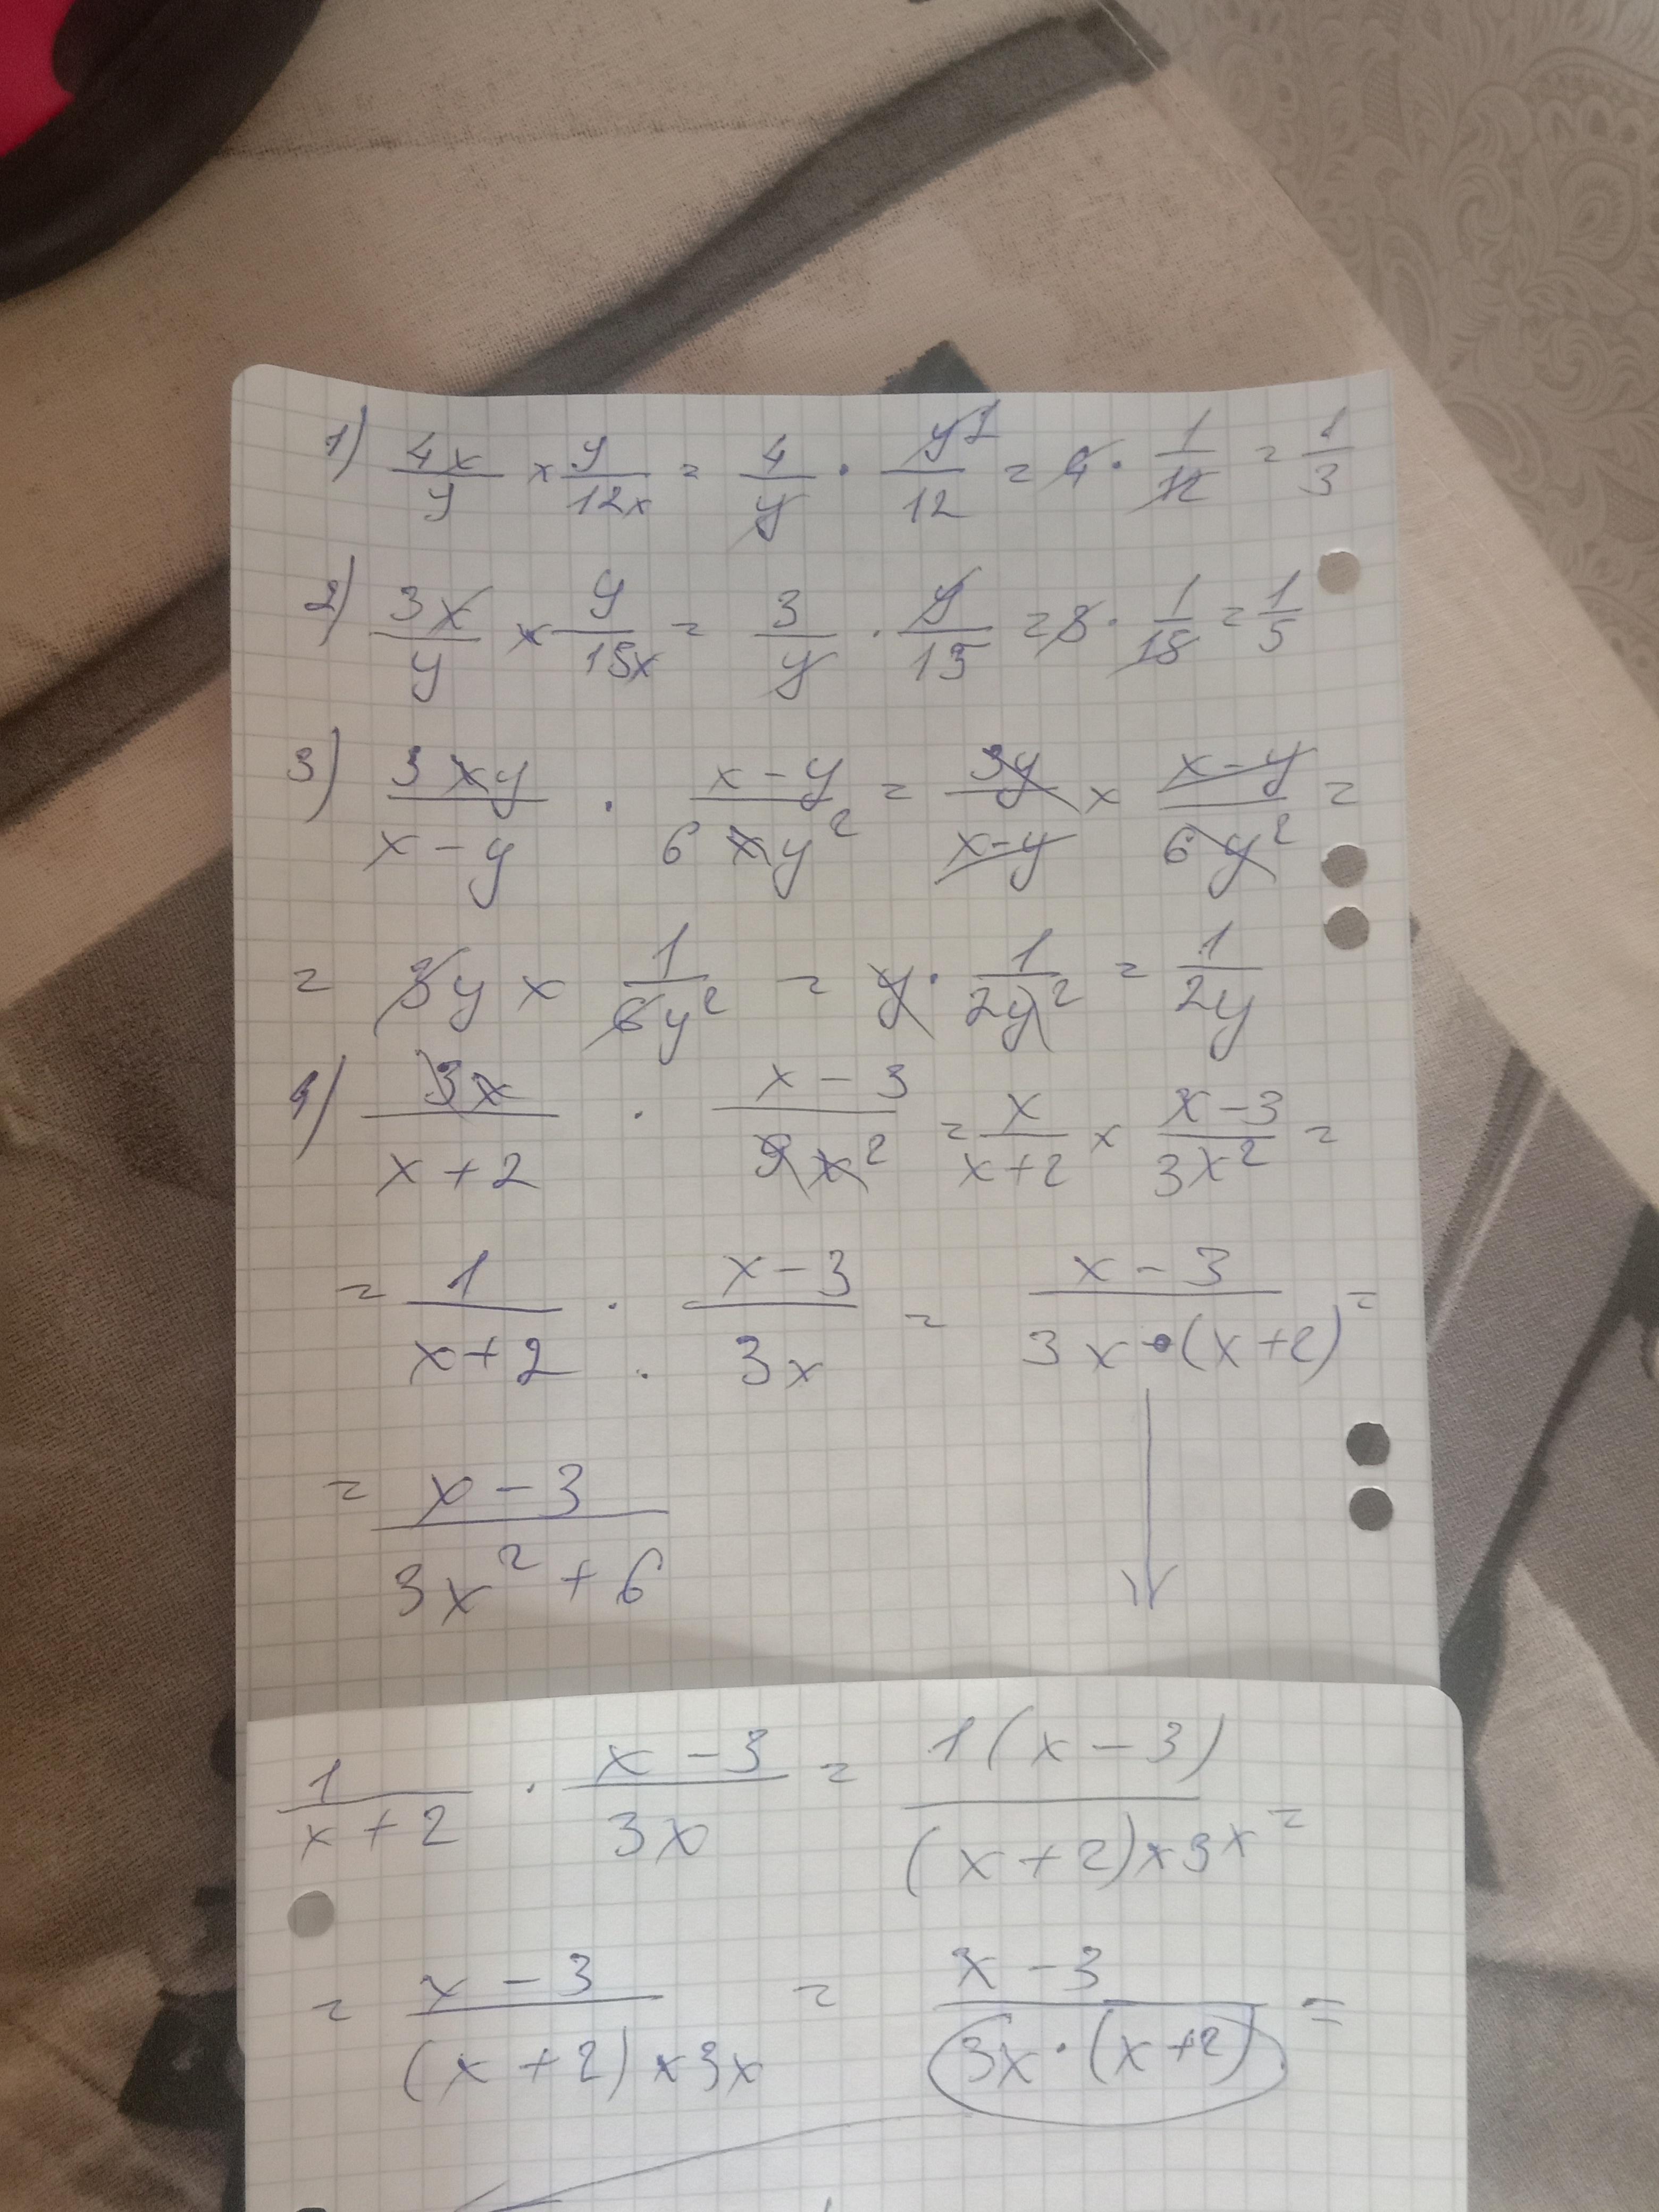 1) 4x/y × y/12x = 4/y · y1/12 = 4 · 1/12 = 1/3
2) 3x/y × y/15x = 3/y · y/15 = 3 · 1/15 = 1/5
3) 3xy/x-y · x-y/6xy² = 3y/x-y × x-y/6y² =
= 3y × 1/6y² = y · 1/2y² = 1/2y
4) 3x/x+2 · x-3/9x² = x/x+2 × x-3/3x² =
= 1/x+2 · x-3/3x = x-3/3x·(x+2) =
= x-3/3x²+6
1/x+2 · x-3/3x = 1(x-3)/(x+2)×3x =
= x-3/(x+2)×3x = x-3/3x·(x+2) =